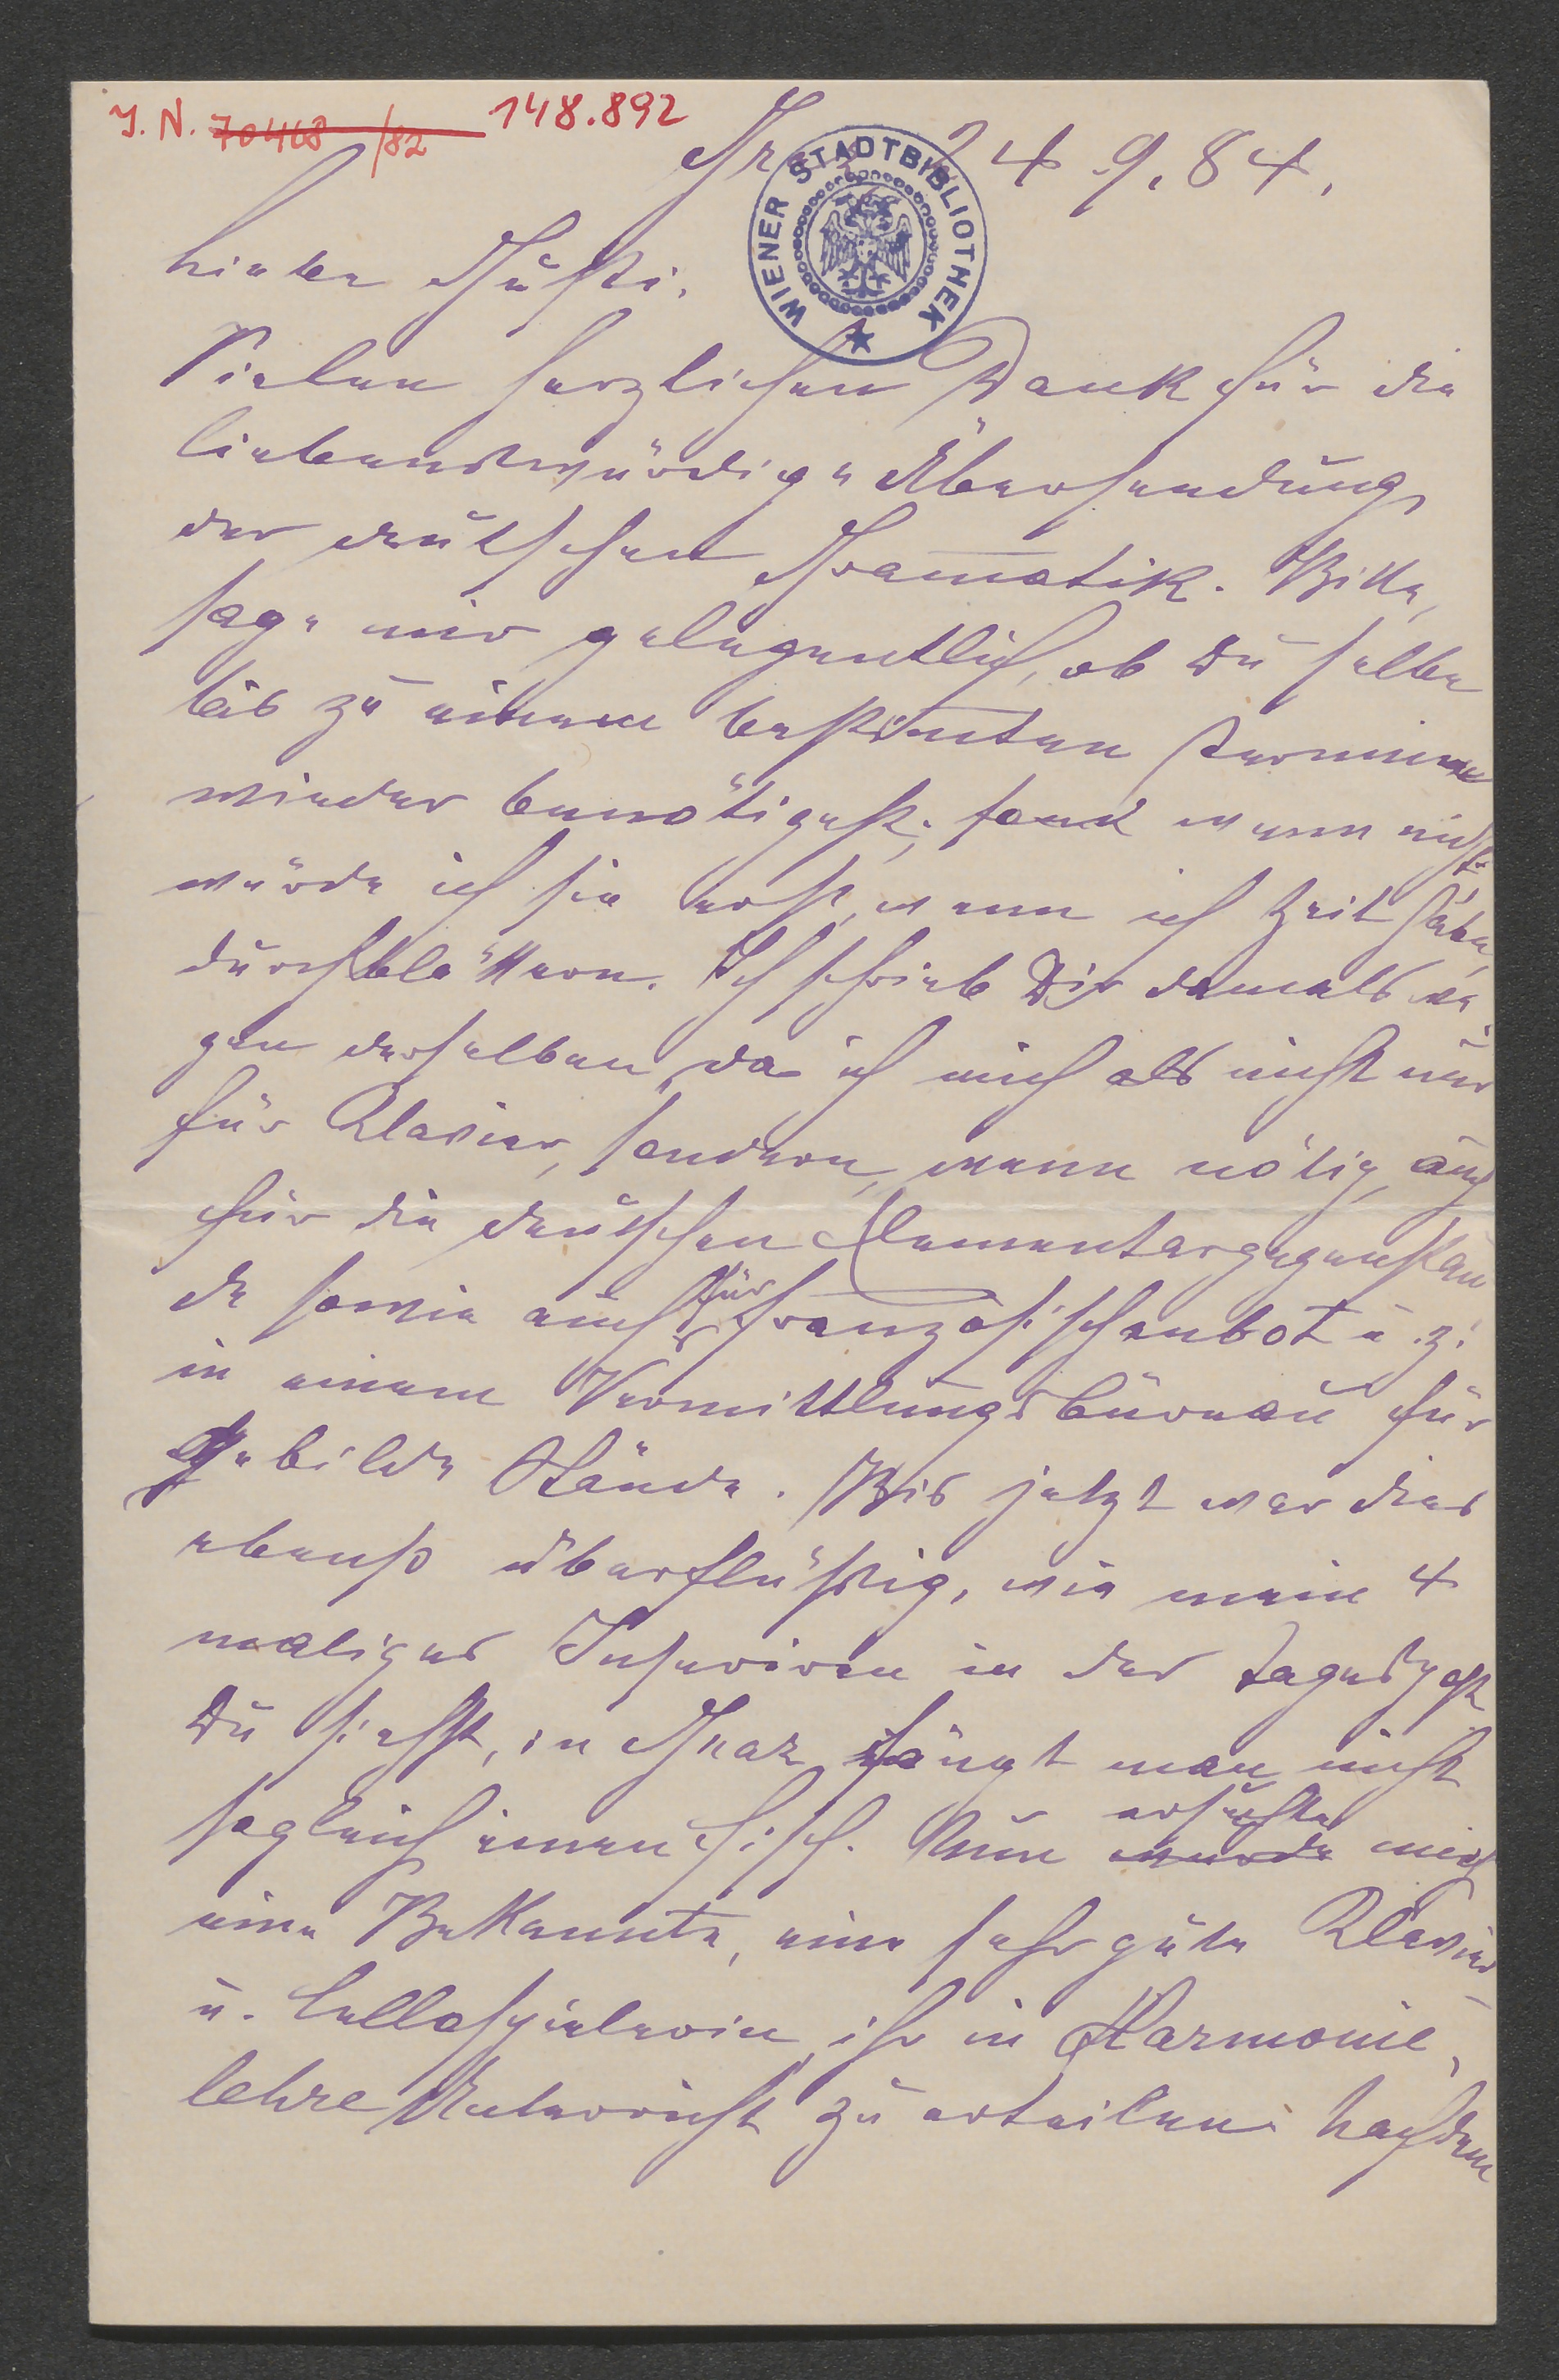 J. N. 70468 /82 148.892
Graz 24. 9. 84.
WIENER STADTBIBLIOTHEK
Lieber Gusti.
Vielen herzlichen Dank für die
liebenswürdige Übersendung
der deutschen Gramatik. Bitte,
sage mir gelegentlich, ob Du selbe
bis zu einem bestimten Termine
wieder benötigest; sond wenn nicht
würde ich sie erst, wenn ich Zeit habe,
durchblättern. Ich schrieb Dir damals we¬
gen derselben, da ich mich als nicht nur
für Klavier, sondern, wenn nötig, auch
für die deutschen Elementargegenstän
de sowie auch für Französisch anbot u. z.
in einem Vermittlungsbüreau für
gebilde Stände. Bis jetzt war dies
ebenso überflüßig, wie mein 4
maliges Inseriren in der Tagespost
Du siehst, in Graz fängt man nicht
sogleich einen Fisch. Nun wurde ersuchte mich
eine Bekannte, eine sehr gute Klavier
u. Cellospielerin, ihr in Harmonie¬
lehre Unterricht zu erteilen. Nachdem